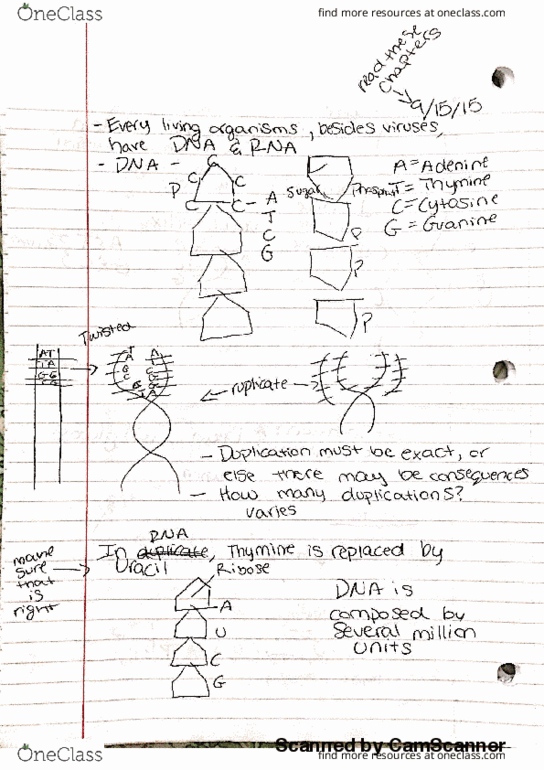 OneClass
find more resources at oneclass.com
read these
chapters
9/15/15
- Every living organisms, besides viruses,
have DNA & RNA
- DNA -
C
C C
P
C C - A
T
C
G
Sugar Phosphat
P
P
P
A = Adenine
T = Thymine
C = Cytosine
G = Guanine
Twisted
AT
TA
CG
replicate
- Duplication must be exact, or
else there may be consequences
- How many duplications?
varies
make
sure
that
is
right
DNA
In duplicate, Thymine is replaced by
Uracil
Ribose
A
U
C
G
DNA is
composed by
several million
units
Scanned by CamScanner
OneClass
find more resources at oneclass.com